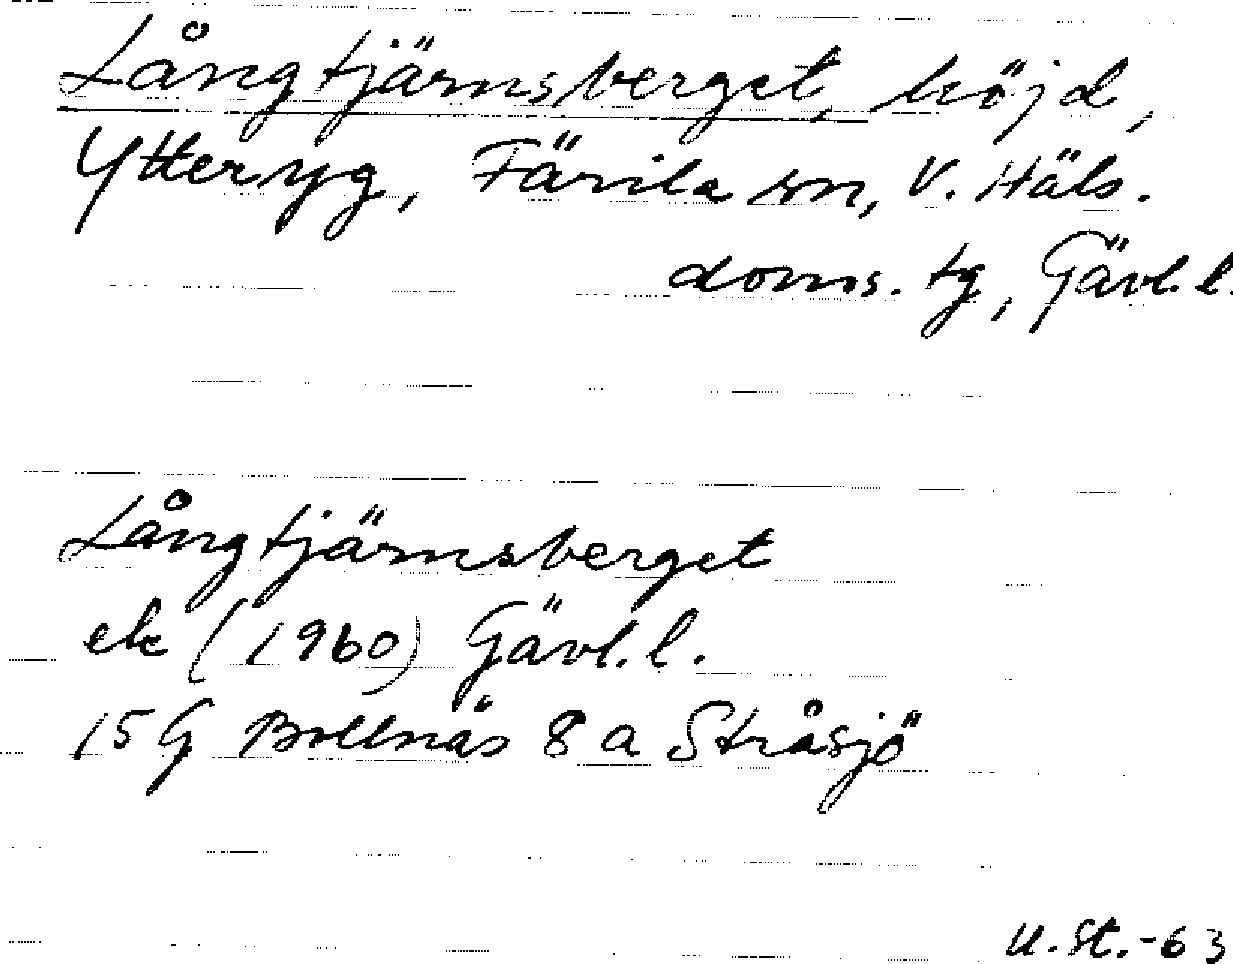 Långtjärnsberget, höjd,
Ytteryg, Färila sn, V. Häls.
doms. tg, Gävl. l.
Långtjärnsberget
ek (1960) Gävl. l.
15 G Bollnäs 8 a Stråsjö
U. St. -63